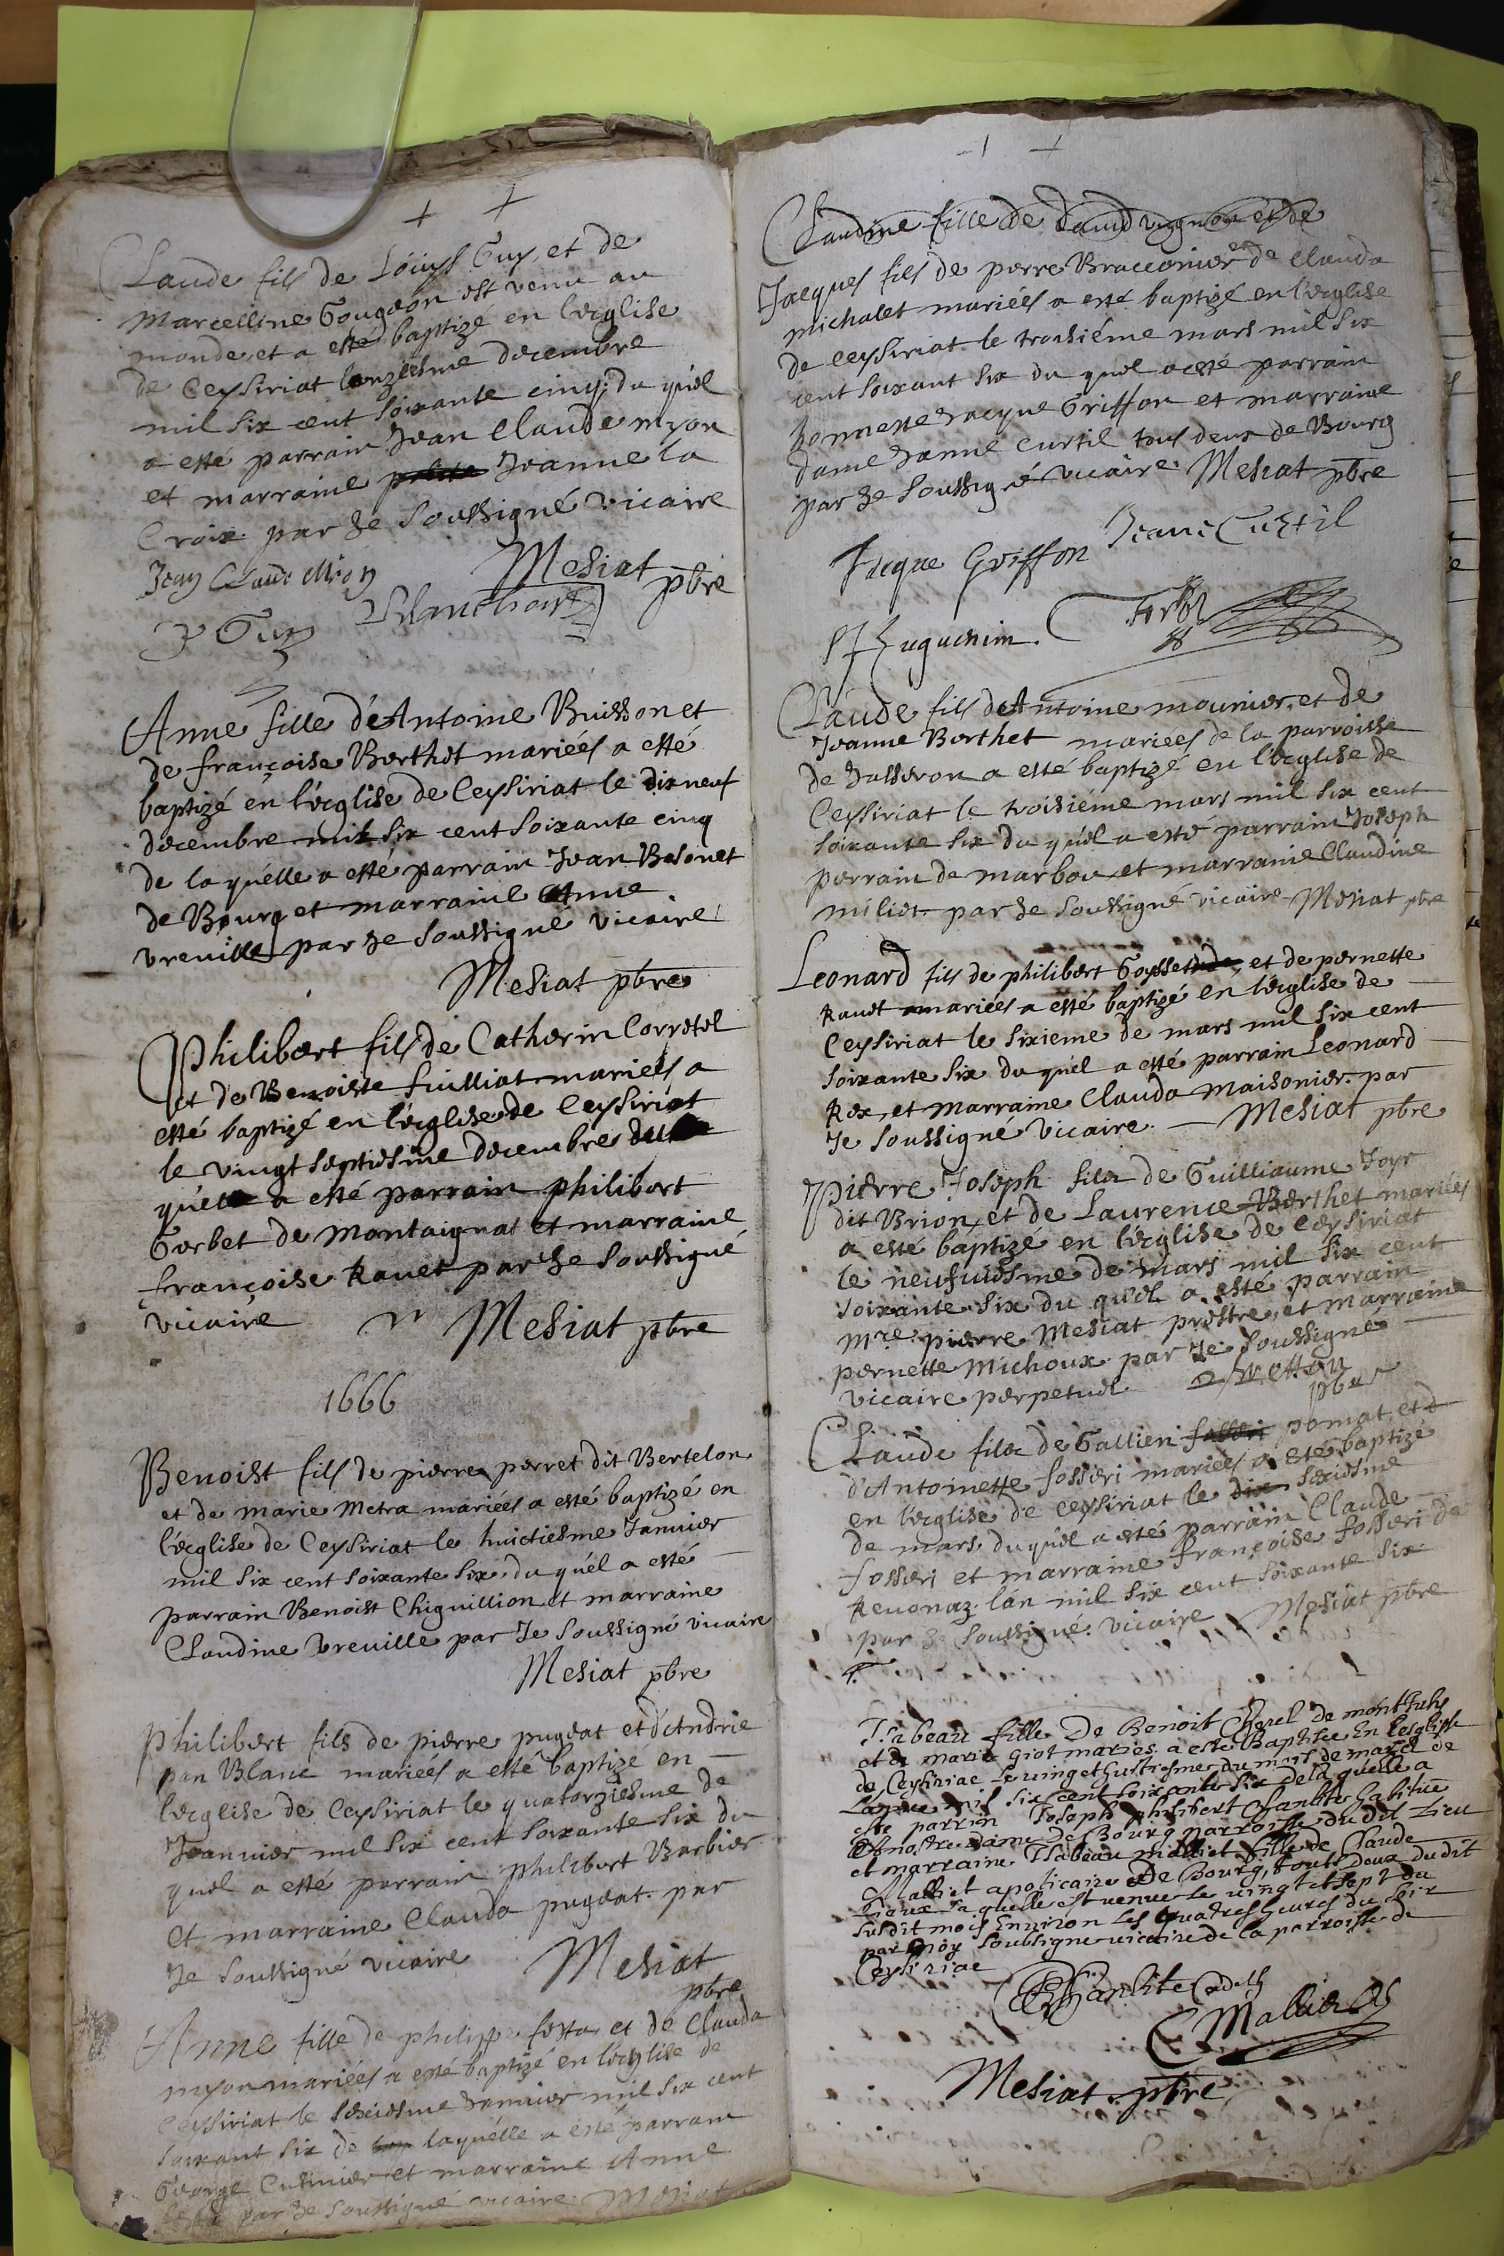 Claude fils de Loüys Guy, et de
Marcelline Gougeon est venu au
monde, et a esté baptizé en l'eglise
de Ceysiriat l'onziesme decembre
mil six cent soixante cinq; du quel
a esté parrain Jean Claude myon
et marraine Jeanne la
Croix par Je soussigné vicaire
Mesiat pbre
Jean Claude Mion
Blanchart
P Guy
Anne fille d'Antoine Buisson et
de françoise Berthet mariées a esté
baptizé en l'eglise de Ceysiriat le dixneuf
decembre mil six cent soixante cinq
de laquelle a esté parrain Jean Besonet
de Bourg et marraine Anne
vreville par Je soussigné vicaire
Mesiat pbre
Philibert fils de Catherin Corretel
et de Benoiste fuilliat mariées a
esté baptizé en l'eglise de Ceysiriat
le vingt septiesme decembre du
quel a esté parrain philibert
Gorbet de Montaignat et marraine
françoise Ravet par Je soussigné
vicaire Mesiat pbre
1666
Benoist fils de pierre perret dit Bertelon
et de marie Metra mariées a esté baptizé en
l'eglise de Ceysiriat le huictiesme Janvier
mil six cent soixante six, du quel a esté
parrain Benoist Chiguillion et marraine
Claudine vreville par Je soussigné vicaire
Mesiat pbre
Philibert fils de pierre pugeat et d'Andrie
pan Blanc mariees a esté baptizé en
l'eglise de Ceysiriat le quatorziesme de
Jeanvier mil six cent soixante six du
quel a esté parrain philibert Barbier
et marraine Clauda pugeat. par
Je soussigné vicaire Mesiat
pbre
Anne fille de philippe festa et de Clauda
myon mariées a esté baptizé en l'eglise de
Ceysiriat le seziesme Janvier mil six cent
soixant six de laquelle a esté parrain
George Cusinier et marraine Anne
par Je soussigné vicaire Mesiat
Claudine fille de david vugnon et de
Jacques fils de pierre Bracconier et de clauda
michalet mariées a esté baptizé en l'eglise
de ceysiriat le troisiéme mars mil six
cent soixant six du quel a esté parrain
honneste Jacque Griffon et marraine
dame Janne Curtil tous deux de Bourg
par Je soussigné vicaire. Mesiat pbre
Jacque Griffon Jeanne Curtil
Huguenin.
Claude fils d'Antoine mounier, et de
Jeanne Berthet mariees de la parroisse
de Jasseron a esté baptizé en l'eglise de
Ceysiriat le troisiéme mars mil six cent
soixante six du quel a esté parrain Joseph
perrain de marbou et marraine Claudine
miliet par Je soussigné vicaire Mesiat pbre
Leonard fils de philibert Goysset et de pernette
Ravet mariées a esté baptizé en l'eglise de
Ceysiriat le sixieme de mars mil six cent
soixante six du quel a esté parrain Leonard
Rex, et marraine Clauda Maisonier. par
Je soussigné vicaire. Mesiat pbre
Pierre Joseph fils de Guilliaume Joyr
dit Brion, et de Laurence Berthet mariées
a esté baptizé en l'eglise de Ceysiriat
le neufviesme de mars mil six cent
soixante six du quel a esté parrain
Mre pierre Mesiat prestre, et marraine
pernette Michoux. par Je soussigné
vicaire perpetuel
Claude fils de Gallien pomat, et
d'Antoinette fosseri mariées a esté baptizé
en l'eglise de ceysiriat le seziesme
de mars duquel a esté parrain Claude
fosseri et marraine françoise fosseri de
Revonaz l'an mil six cent soixante six
par Je soussigné vicaire Mesiat pbre
Isabeau fille De Benoit Chorel de mont July
et de marie giot maries a este Baptisee En lesglise
de Ceysiriac Le vinget huitiesme du mois de mars de
Lanne mil six cent soixante six dela quelle a
este parrin Joseph philibert Chanlite habitue
A nostre dame De Bourg parroisse du dit Lieu
et marraine Isabeau Malliet fille de Claude
Malliet apoticaire De Bourg, touts Deux du dit
Lieux, la quelle est venue le vingt et sept du
susdit mois Environ Les quatres heures du soir
par moy soubsigne vicaire de la parroisse de
Ceysiriac
C Malliet
Mesiat pbre